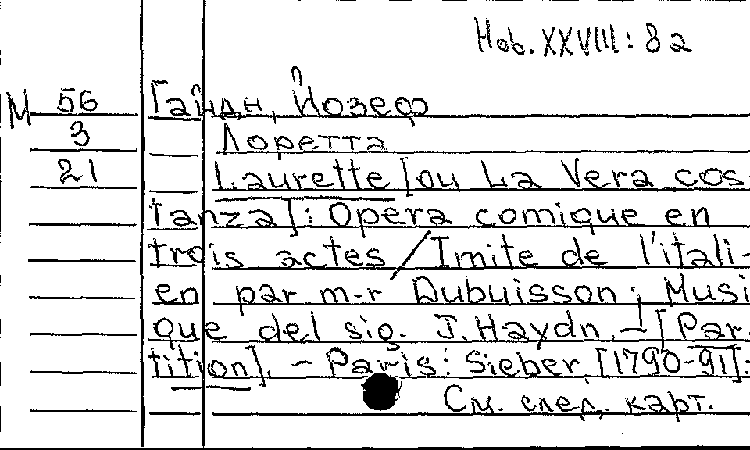 Hob. XXVIII: 8 a
M 56 Гайдн, Йозеф
3 Лоретта
21 Laurette [ou La Vera cos-
tanza]: Opera comique en
trois actes / Imite de l'itali-
en par m-r Dubuisson; Musi
que del sig. J. Haydn. – [Par-
tition]. – Paris: Sieber, [1790-91].
См. след. карт.